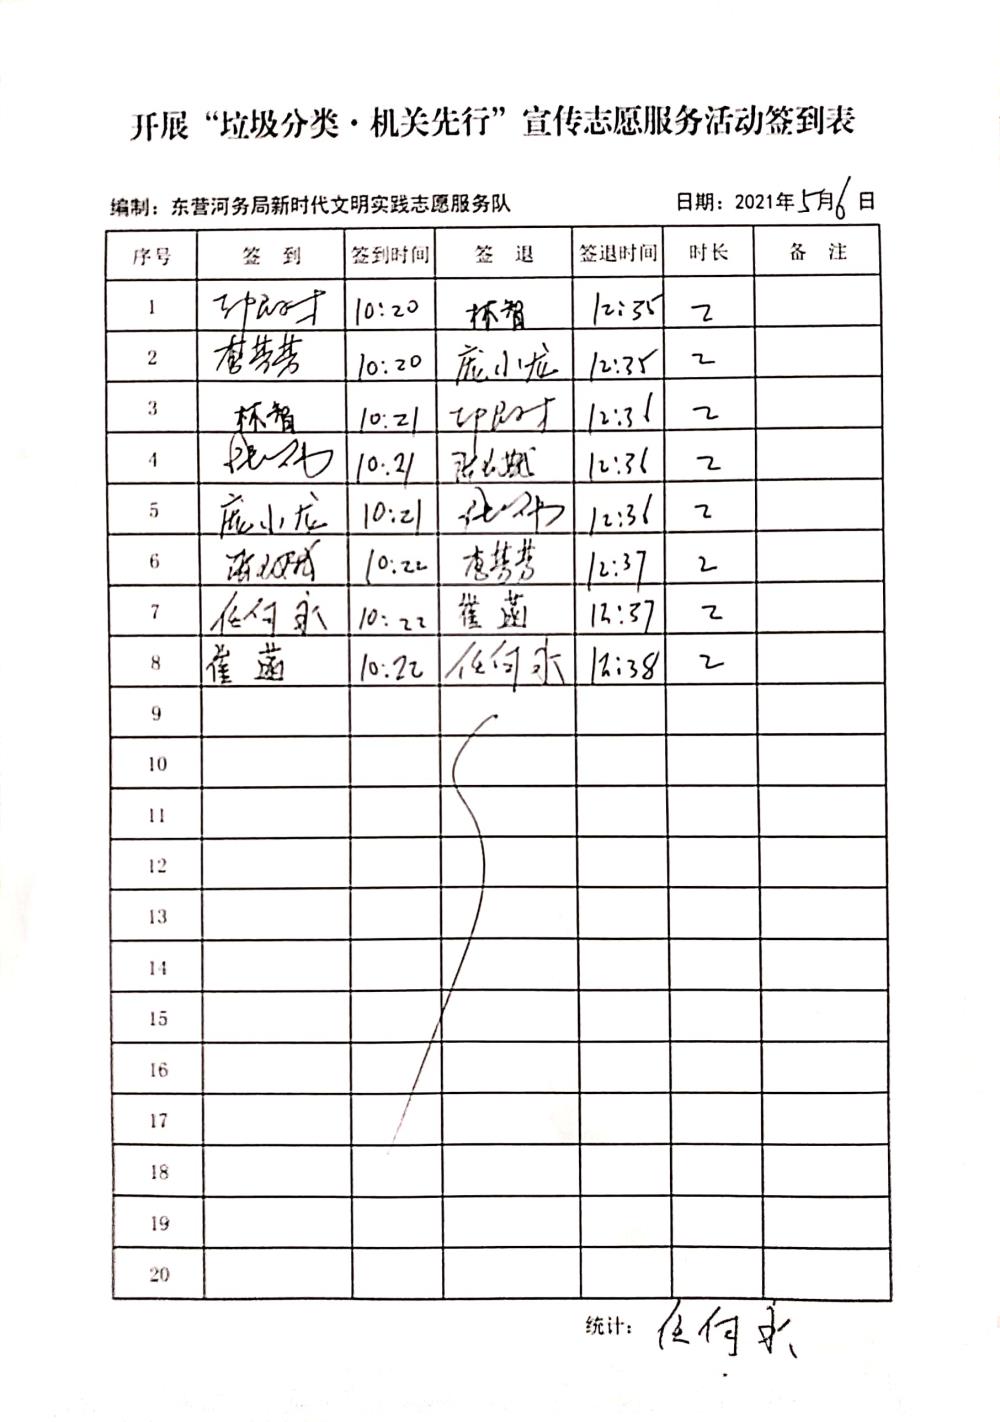 开展“垃圾分类·机关先行”宣传志愿服务活动签到表
编制：东营河务局新时代文明实践志愿服务队 日期：2021年5月6日
序号 签 到 签到时间 签 退 签退时间 时长 备 注
1 10:20 林智 12:35 2
2 10:20 庞小龙 12:35 2
3 林智 10:21 12:36 2
4 10:21 12:36 2
5 庞小龙 10:21 12:36 2
6 10:22 12:37 2
7 任何永 10:22 崔菡 12:37 2
8 崔菡 10:22 任何永 12:38 2
9
10
11
12
13
14
15
16
17
18
19
20
统计：任何永